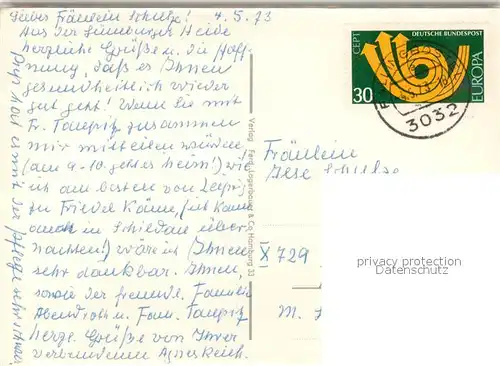 Liebes Fräulein Schulze! 4.5.73
Aus der Lüneburger Heide
herzliche Grüße u. die Hoff-
nung, daß es Ihnen
gesundheitlich wieder
gut geht! Wenn Sie mit
Fr. zusammen
mir mitteilen würden,
(am 9-10. geht es heim!) wie
ich am besten von
zu Friedel käme, (ich kann
in über-
nachten!) wäre ich Ihnen
sehr dankbar. Ihnen,
sowie der freundl. Familie
Abendroth u. Fam.
herzl. Grüße von Ihrer
verbundenen Agnes Reich.
Verlag Ferd. Lagerbauer & Co Hamburg 33
CEPT
DEUTSCHE BUNDESPOST
30
EUROPA
3032
Fräulein
Ilse Schulze
X 729
M.
privacy protection
Datenschutz